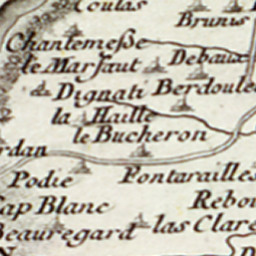 Coulas
Brunis
Chantemeße
le Marsaut Debaux
Dignati Berdoule
la Haille
le Bucheron
rdan
Podie Fontarailles
Cap Blanc Rebou
Beauregard las Clare